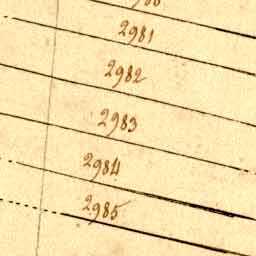 2981
2982
2983
2984
2985